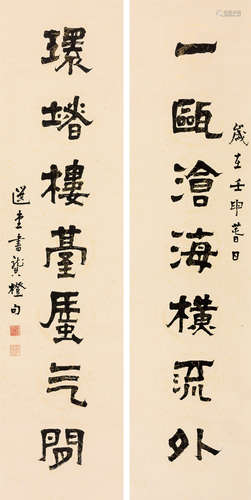 一甌滄海橫流外
歲在壬申暮春日
環堵樓臺蜃气間
選堂書龔橙句